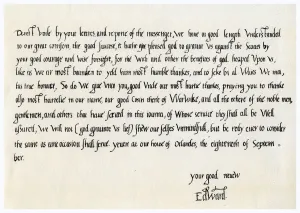 Derest Uncle by your letters and reporte of the messenger, we have at good length understanded
to our great comfort, the good succese, it hathe pleased god to graunt us against the Scottes by
your good courage and wise foresight, for the wich and other the benefites of god heaped upon us,
like as we ar most bounden to yeld him most humble thankes, and to seke bi al waies we mai,
his true honour, So do we give unto you, good Uncle our most hartie thankes, praying you to thanke
also most hartelie in our name, our good Cosin therle of Warwike, and all the othere of the noble men,
gentlemen, and others that have served in this iournei, of whose service they shall all be well
assured, we will not (god graunte us lief) shew our selfes unmindfull, but be redy ever to consider
the same as anie occasion shall serve. yeven at our house of Otlandes, the eighteneth of Septem-
ber.
your good neuew
Edward.